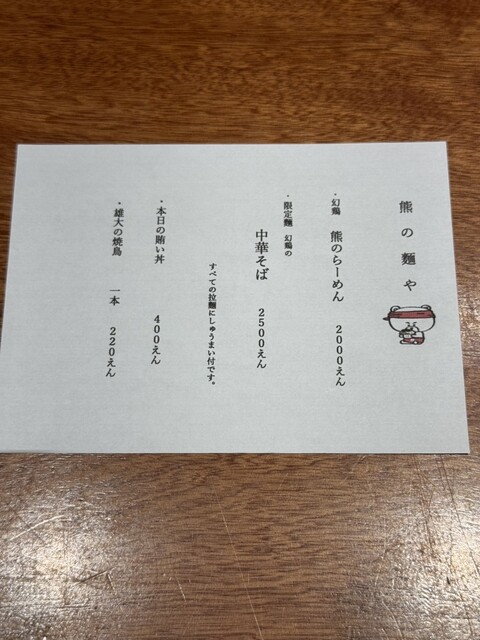 熊の麺や
・幻鶏 熊のらーめん 2000えん
・限定麺 幻鶏の
中華そば 2500えん
すべての拉麺にしゅうまい付です。
・本日の賄い丼 400えん
・雄大の焼鳥 一本 220えん